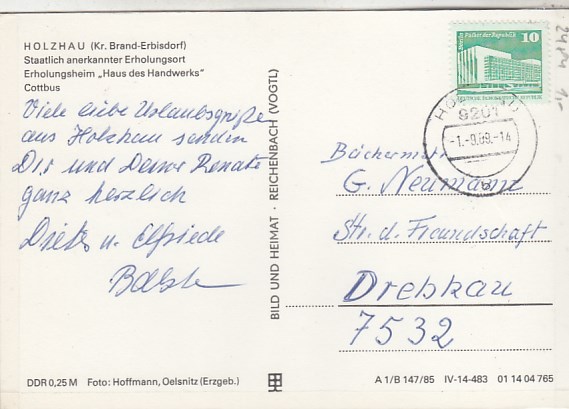 HOLZHAU (Kr. Brand-Erbisdorf)
Staatlich anerkannter Erholungsort
Erholungsheim „Haus des Handwerks"
Cottbus
Viele liebe Urlaubsgrüße
aus Holzhau senden
Dir und Deiner Renate
ganz herzlich
u. Elfriede
BILD UND HEIMAT · REICHENBACH (VOGTL)
10
Berlin, Palast der Republik
HOLZHAU
9201
-1.-9.89.-14
Bäckermstr.
G. Neumann
Str. d. Freundschaft
Drebkau
7532
DDR 0,25 M Foto: Hoffmann, Oelsnitz (Erzgeb.)
A 1/B 147/85 IV-14-483 01 14 04 765